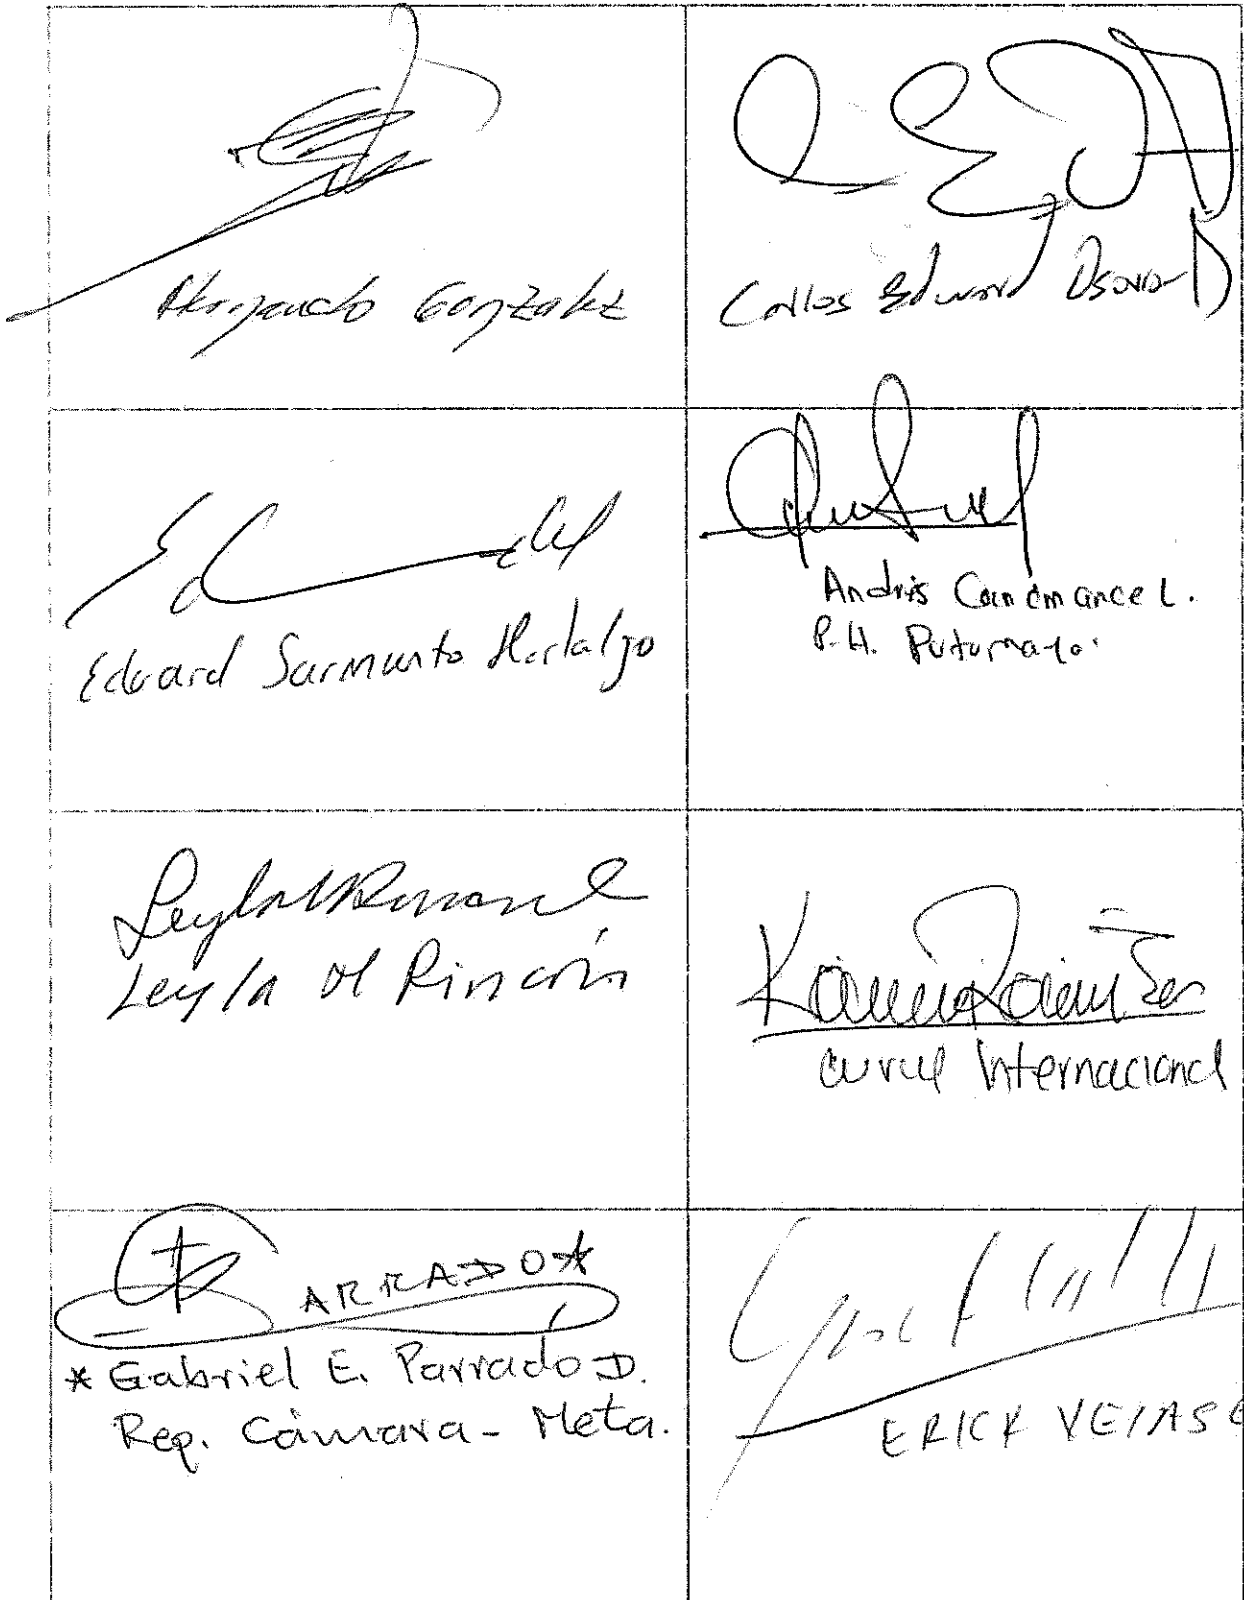 Hernando González
Carlos Edward Osorio
Eduard Sarmiento Hidalgo
Andrés Cancimance L.
P.H. Putumayo.
Leyla M Rincón
curul Internacional
ARRADO*
* Gabriel E. Parrado D.
Rep. Cámara - Meta.
ERICK VELASC